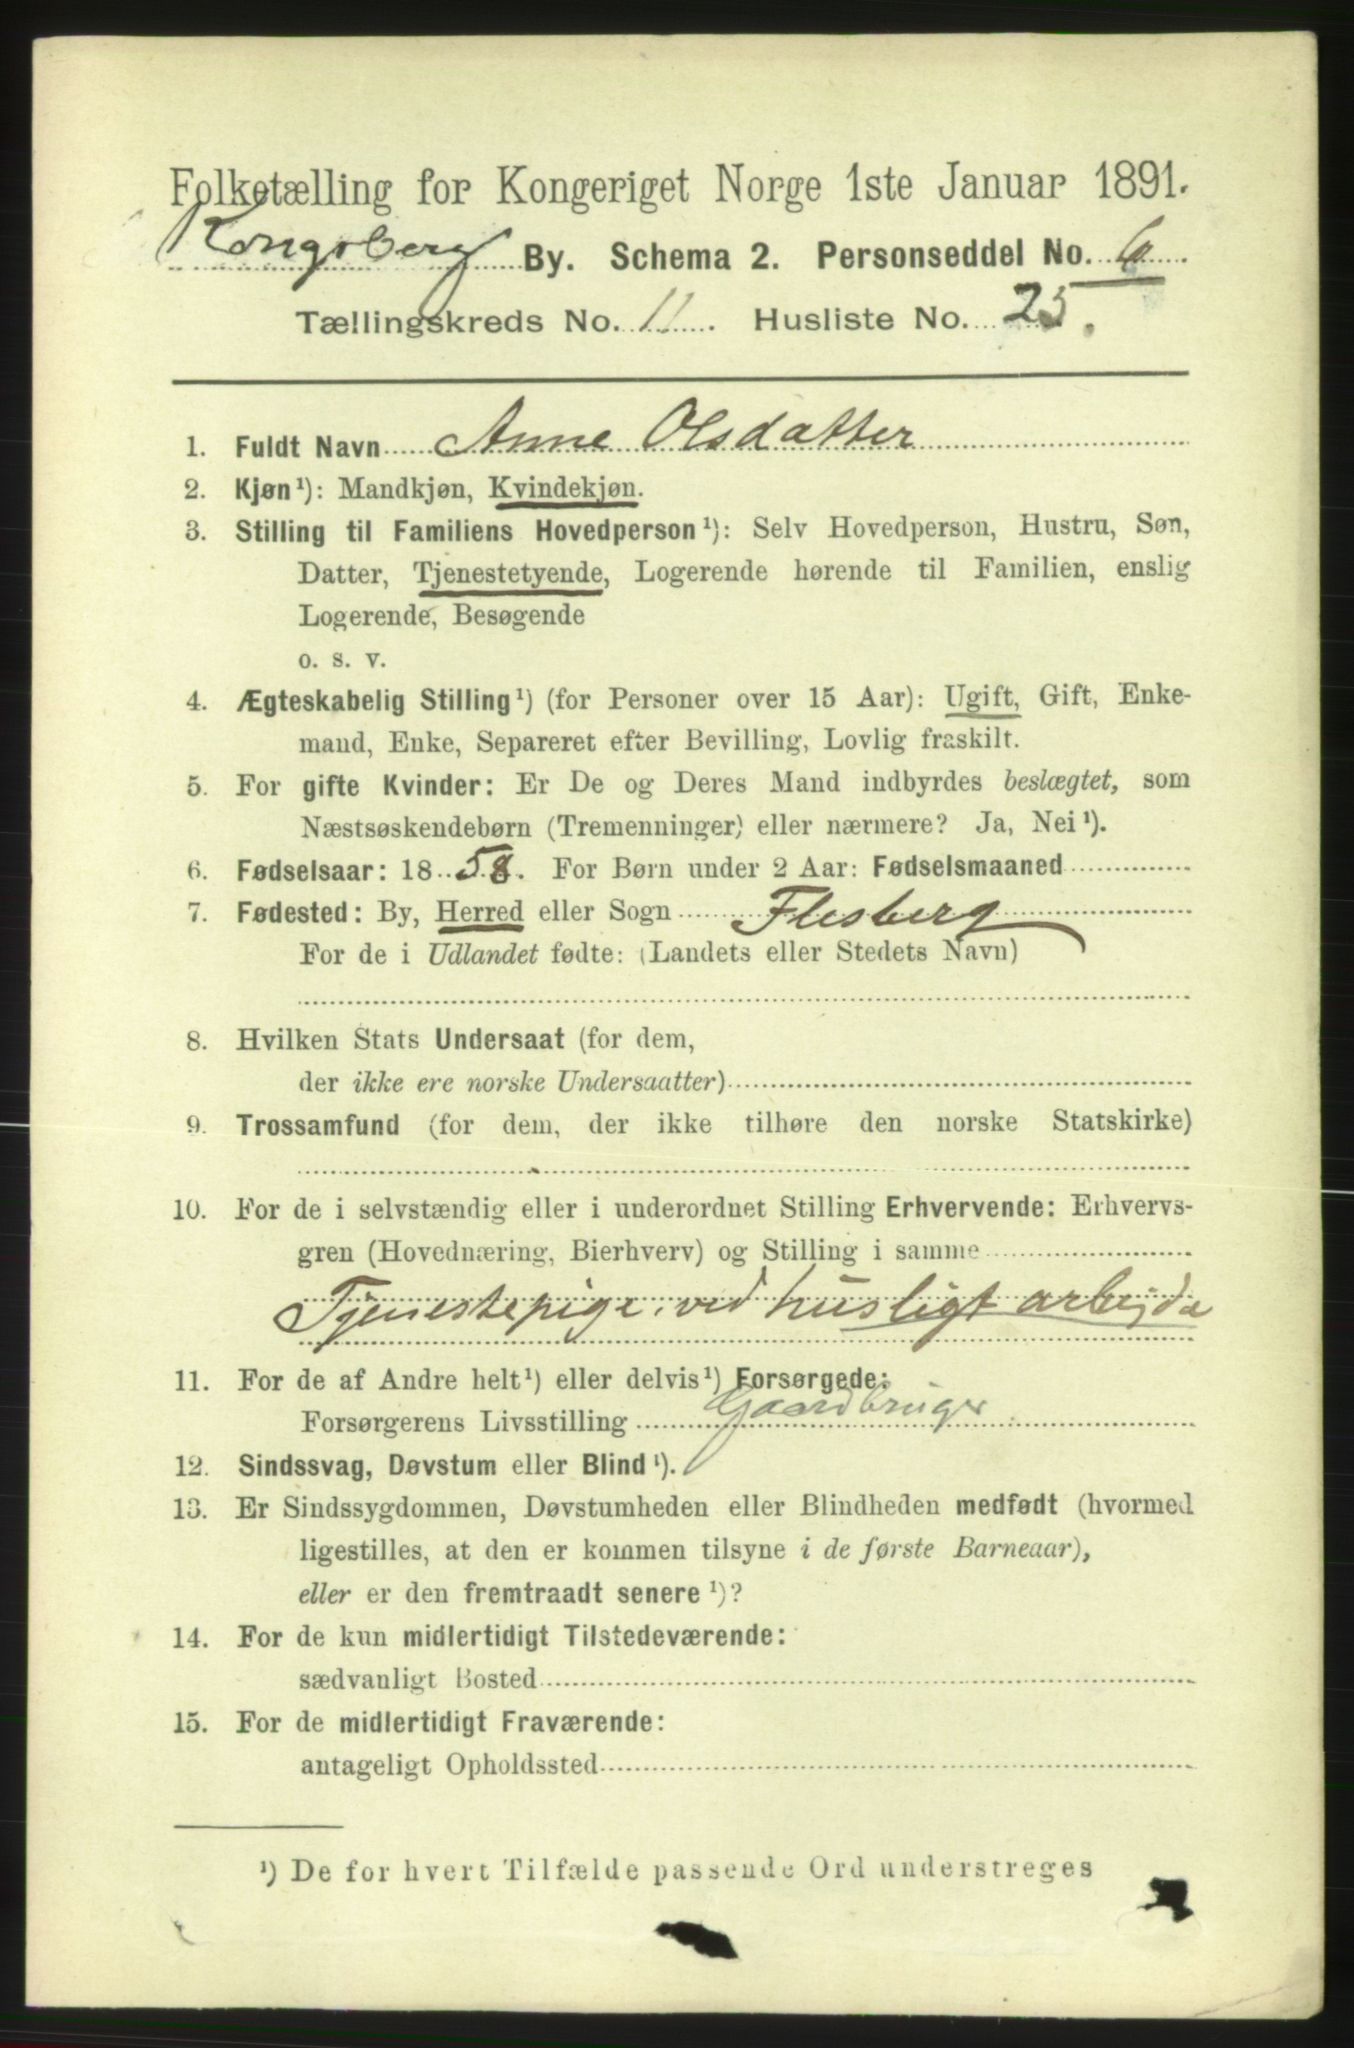 Folketælling for Kongeriget Norge 1ste Januar 1891.
Kongsberg By. Schema 2. Personseddel No. 6
Tællingskreds No. 11. Husliste No. 25.
1. Fuldt Navn Anne Olsdatter
2. Kjøn¹): Mandkjøn, Kvindekjøn.
3. Stilling til Familiens Hovedperson¹): Selv Hovedperson, Hustru, Søn,
Datter, Tjenestetyende, Logerende hørende til Familien, enslig
Logerende, Besøgende
o. s. v.
4. Ægteskabelig Stilling¹) (for Personer over 15 Aar): Ugift, Gift, Enke-
mand, Enke, Separeret efter Bevilling, Lovlig fraskilt.
5. For gifte Kvinder: Er De og Deres Mand indbyrdes beslægtet, som
Næstsøskendebørn (Tremenninger) eller nærmere? Ja, Nei¹).
6. Fødselsaar: 1858. For Børn under 2 Aar: Fødselsmaaned
7. Fødested: By, Herred eller Sogn Flesberg
For de i Udlandet fødte: (Landets eller Stedets Navn)
8. Hvilken Stats Undersaat (for dem,
der ikke ere norske Undersaatter)
9. Trossamfund (for dem, der ikke tilhøre den norske Statskirke)
10. For de i selvstændig eller i underordnet Stilling Erhvervende: Erhvervs-
gren (Hovednæring, Bierhverv) og Stilling i samme
Tjenestepige. ved husligt arbejde
11. For de af Andre helt¹) eller delvis¹) Forsørgede:
Forsørgerens Livsstilling Gaardbruger
12. Sindssvag, Døvstum eller Blind¹).
13. Er Sindssygdommen, Døvstumheden eller Blindheden medfødt (hvormed
ligestilles, at den er kommen tilsyne i de første Barneaar),
eller er den fremtraadt senere¹)?
14. For de kun midlertidigt Tilstedeværende:
sædvanligt Bosted
15. For de midlertidigt Fraværende:
antageligt Opholdssted
¹) De for hvert Tilfælde passende Ord understreges